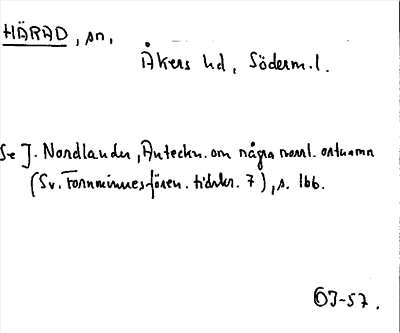 HÄRAD, sn,
Åkers hd, Söderm.l.
Se J. Nordlander, Anteckn. om några norrl. ortnamn
(Sv. Fornminnesfören. tidskr. 7), s. 166.
OJ-57.